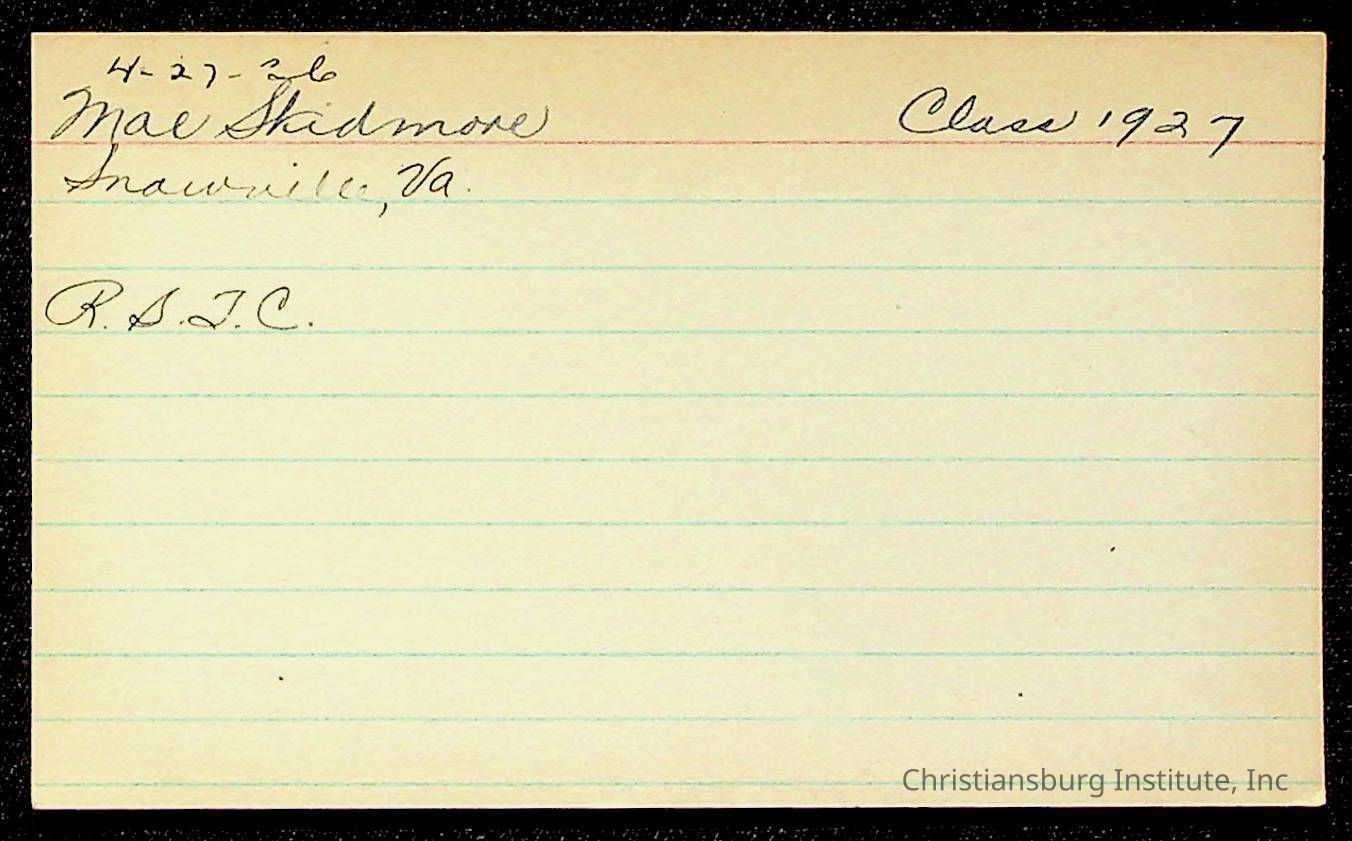 4-27-26
Mae Skidmore Class 1927
Snowville, Va.
R.S.T.C.
Christiansburg Institute, Inc